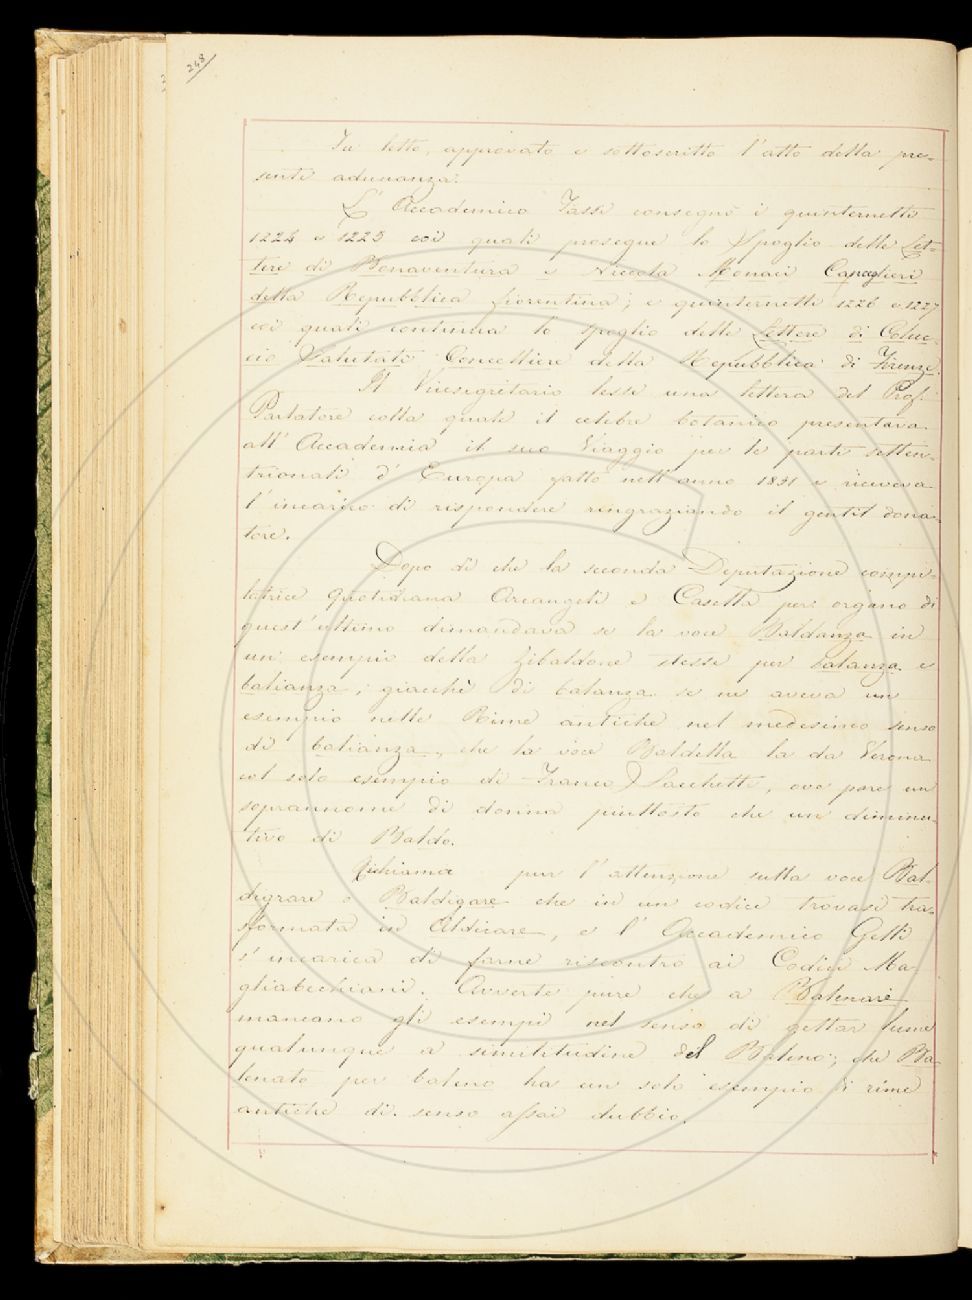 248
Fu letto, approvato e sottoscritto l'atto della pre-
sente adunanza.
L'Accademico Tassi consegnò i quinternetti
1224 e 1225 coi quali prosegue lo Spoglio delle Let-
tere di Bonaventura e Niccola Monaci Cancellieri
della Repubblica fiorentina; e quinternetti 1226 e 1227
coi quali continua lo spoglio delle Lettere di Coluc-
cio Salutati Cancelliere della Repubblica di Firenze.
Il Vicesegretario lesse una lettera del Prof.
Parlatore colla quale il celebre botanico presentava
all'Accademia il suo Viaggio per le parti setten-
trionali d'Europa fatto nell'anno 1851 e riceveva
l'incarico di rispondere ringraziando il gentil dona-
tore.
Dopo di che la seconda Deputazione compi-
latrice quotidiana Arcangeli e Casella per organo di
quest'ultimo dimandava se la voce Baldanza in
un esempio dello Zibaldone stesse per balanza e
balianza; giacchè di balanza se ne aveva un
esempio nelle Rime antiche nel medesimo senso
di balianza, che la voce Baldella la da Verona
col solo esempio di Franco Sacchetti, ove pare un
soprannome di donna piuttosto che un diminu-
tivo di Baldo.
Richiama pur l'attenzione sulla voce Bal-
digrare o Baldigare che in un codice trovasi tra-
sformata in Aldicare, e l'Accademico Gelli
s'incarica di farne riscontro ai Codici Ma-
gliabechiani. Avverte pure che a Balenare
mancano gli esempi nel senso di gettar lume
qualunque a similitudine del Baleno; che Ba-
lenato per baleno ha un solo esempio di rime
antiche di senso assai dubbio.